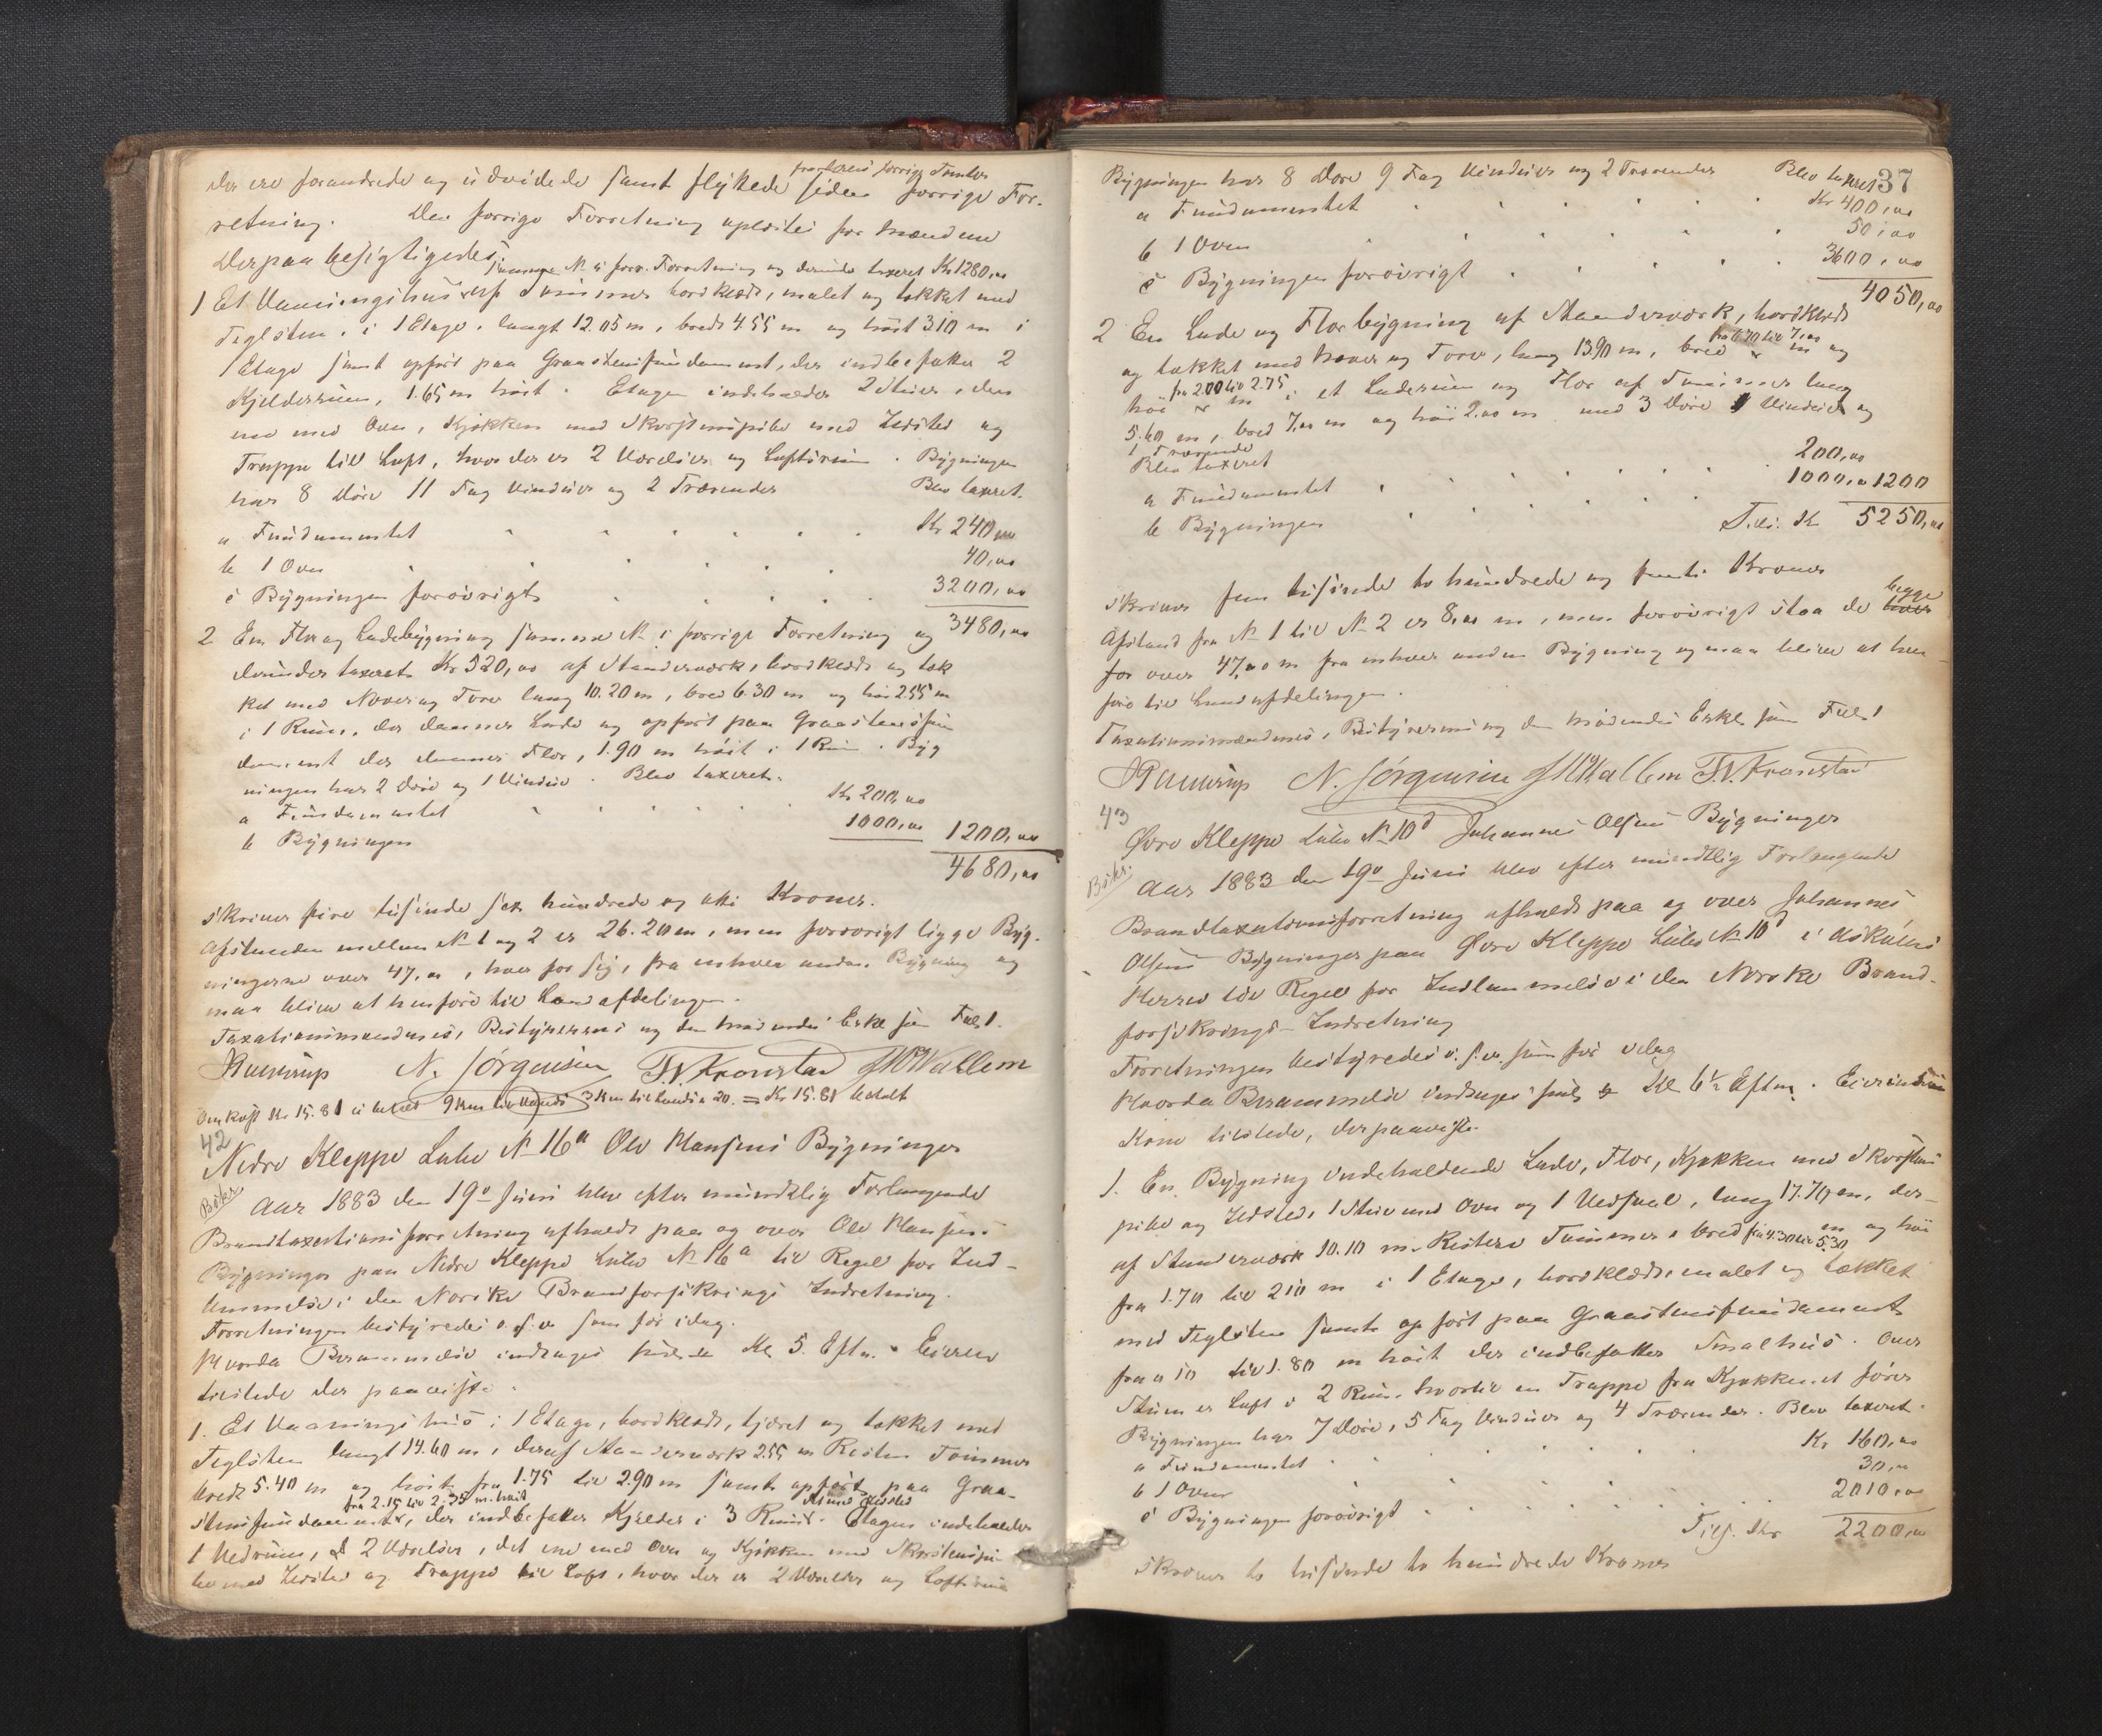 der ere forandrede og udvidede samt flyttede siden forrige For-
fra dens forrige Tomter
retning. Den forrige Forretning oplæstes for Mændene
Derpaa besigtigedes:
samme N. i forr. Forretning og derunder taxeret Kr 1280,00
1 Et Vaaningshus af Tømmer bordklædt, malet og tækket med
Teglsten, i 1 Etage, langt 12.05 m, bredt 4.55 m og høit 3.10 m i
1 Etage samt opført paa Graastensfundament, der indbefatter 2
Kjelderrum, 1.65 m høit. Etagen indeholder 2 Stuer, den
ene med Ovn, Kjøkken med Skorstenspibe med Ildsted og
Trappe til Loft, hvor der er 2 Værelser og Loftsrum. Bygningen
har 8 Døre 11 Fag Vinduer og 2 Trærender Blev taxeret.
a Fundamentet Kr 240,00
b 1 Ovn 40,00
c Bygningen forøvrigt 3200,00
3480,00
2 En Flor og Ladebygning samme N. i forrige Forretning og
derunder taxeret Kr 320,00 af Standerværk, bordklædt og tæk
ket med Næver og Torv lang 10.20 m, bred 6.30 m og høi 2.55 m
i 1 Rum, der danner Lade og opført paa Graastensfun
dament der danner Flor, 1.90 m høit i 1 Rum. Byg
ningen har 2 Døre og 1 Vindue. Blev taxeret.
a Fundamentet Kr 200,00
b Bygningen 1000,00 1200,00
4680,00
skriver fire tusinde sex hundrede og otti Kroner.
Afstanden mellem N 1 og 2 er 26.20 m, men forøvrigt ligge Byg-
ningerne over 47,00, hver for sig, fra enhver anden Bygning og
maa blive at henføre til Landafdelingen.
Taxationsmændenes, Bestyrerens og den mødendes Erkl. som Fol 1.
N. Jørgensen T. N. Kronstad Wallem
Omkost Kr 15.81 9 Km til Vands 3 Km til Lands a 20. = Kr 15.81 betalt
42
Nedre Kleppe Løbe N 16a Ole Hansens Bygninger
Bøkr.
Aar 1883 den 19de Juni blev efter mundtlig Forlangende
Brandtaxationsforretning afholdt paa og over Ole Hansens
Bygninger paa Nedre Kleppe Løbe N 16a til Regel for Ind-
lemmelse i den Norske Brandforsikrings Indretning.
Forretningen bestyredes o. s. v som før idag.
Hvorda Berammelse indtages Kl 5. Eftm. Eieren
tilstede der paaviste.
1. Et Vaaningshus i 1 Etage, bordklædt, tjæret og tækket med
Teglsten langt 14.60 m, deraf Standerværk 2.55 m Resten Tømmer
bredt 5.40 m og høit fra 1.75 til 2.90 m samt opført paa Graa-
fra 2.15 til 2.35 m. høit
stensfundament, der indbefatter Kjelder i 3 Rum. Etagen indeholder
1 Vedrum, 2 Værelser, det ene med Ovn og Kjøkken med Skorstenspi-
be med Ildsted og Trappe til Loft, hvor der er 2 Værelser og Loftsrum
37
Bygningen har 8 Døre 9 Fag Vinduer og 2 Trærender Blev taxeret
a Fundamentet Kr 400,00
b 1 Ovn 50,00
c Bygningen forøvrigt 3600,00
4050,00
2 En Lade og Florbygning af Standerværk, bordklædt
og tækket med Næver og Torv, lang 13.90 m, bred fra 6.70 til 7,00 m og
høi fra 2.00 til 2.75 m i et Laderum og Flor af Tømmer lang
5.60 m, bred 7,00 m og høi 2.00 m med 3 Døre 1 Vindue og
1 Trærende
Blev taxeret
a Fundamentet 200,00
b Bygningen 1000,00 1200
Tils. Kr 5250,00
skriver fem tusinde to hundrede og femti Kroner
Afstand fra N 1 til N 2 er 8,00 m, men forøvrigt staa de begge
for over 47,00 m fra enhver anden Bygning og maa blive at hen-
føre til Landafdelingen.
Taxationsmændenes, Bestyrerens og den mødendes Erkl. som Fol 1
N. Jørgensen Wallem T. N. Kronstad
43
Øvre Kleppe Løbe N 10d Johannes Olsens Bygninger
Bøkr.
Aar 1883 den 19de Juni blev efter mundtlig Forlangende
Brandtaxationsforretning afholdt paa og over Johannes
Olsens Bygninger paa Øvre Kleppe Løbe N 10d i Askøens
Herred til Regel for Indlemmelse i den Norske Brand-
forsikrings-Indretning
Forretningen bestyredes o. s. v. som før idag
Hvorda Berammelse indtages Kl 6½ Eftm. Eierinden
kom tilstede, der paaviste.
1. En Bygning indeholdende Lade, Flor, Kjøkken med Skorstens
pibe og Ildsted, 1 Stue med Ovn og 1 Vedsval, lang 17.70 m, der-
af Standerværk 10.10 m. Resten Tømmer, bred fra 4.30 til 5.30 m og høi
fra 1.70 til 2.10 m i 1 Etage, bordklædt, malet og tækket
med Teglsten samt opført paa Graastensfundament
fra 0.10 til 1.80 m høit der indbefatter Smalhus. Over
Stuen er Loft i 2 Rum hvortil en Trappe fra Kjøkkenet fører
Bygningen har 7 Døre, 5 Fag Vinduer og 4 Trærender. Blev taxeret.
a Fundamentet Kr 160,00
b 1 Ovn 30,00
c Bygningen forøvrigt 2010,00
Tils. Kr 2200,00
skriver to tusinde to hundrede Kroner